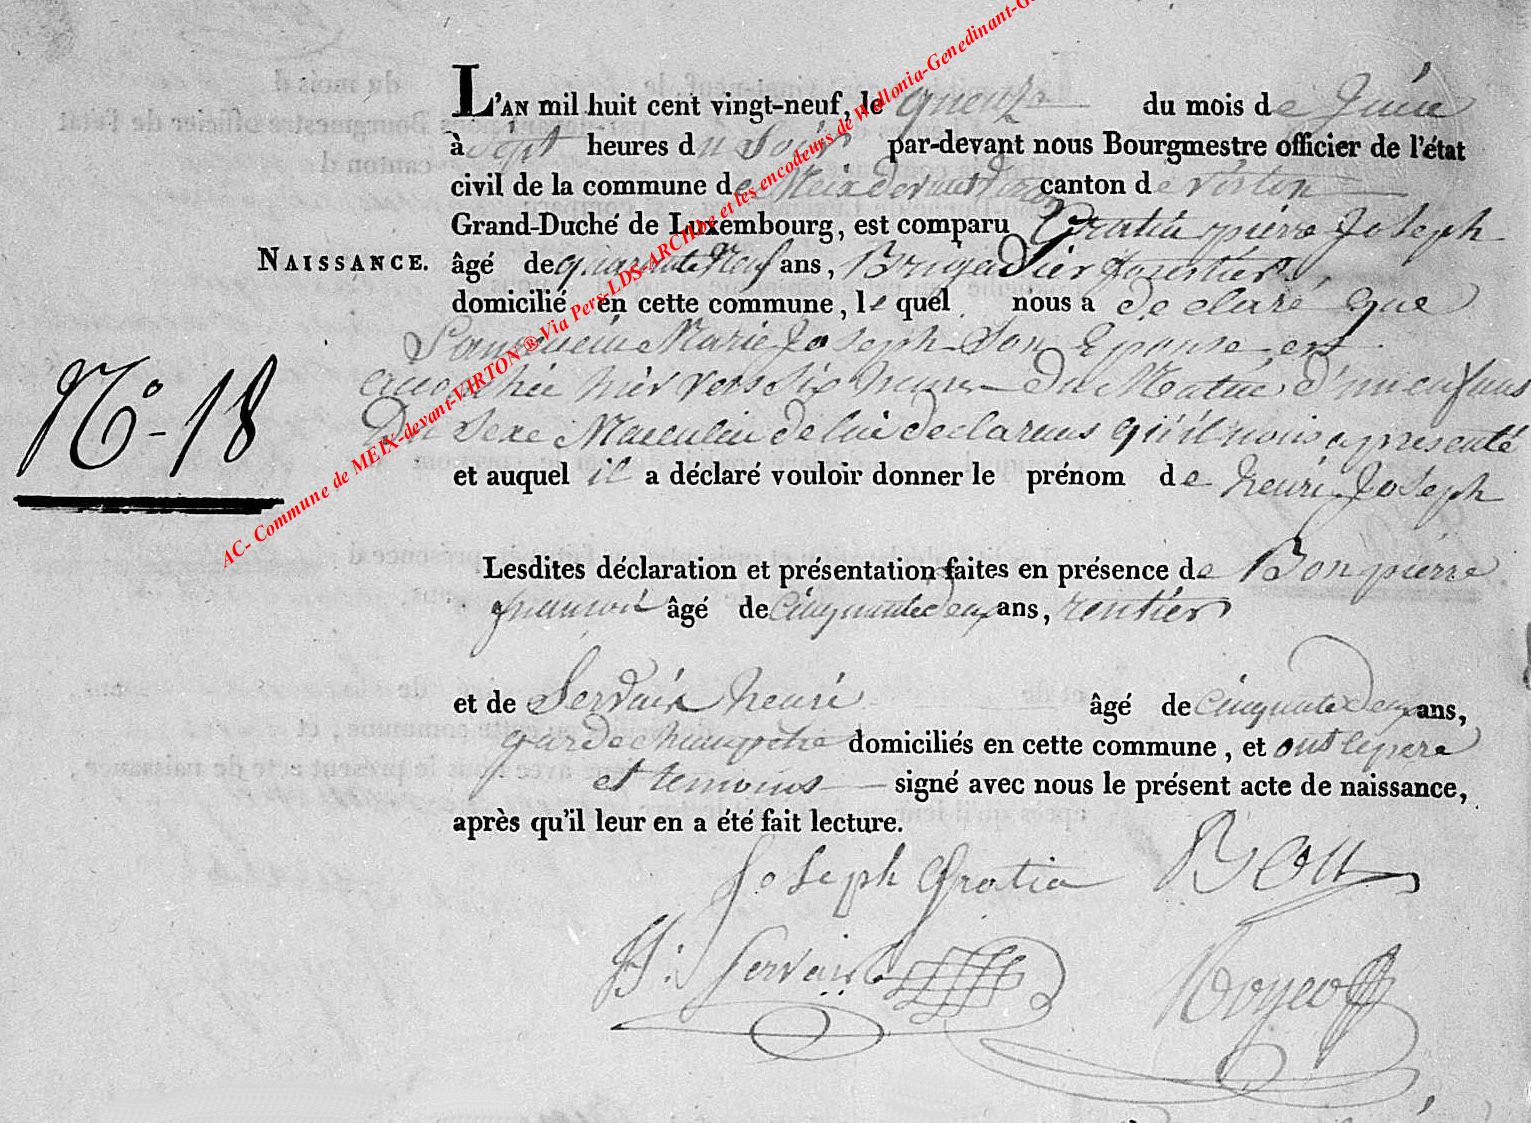 L'AN mil huit cent vingt-neuf, le quinze du mois de Juin
à sept heures du soir par-devant nous Bourgmestre officier de l'état
civil de la commune de Meix devant Virton canton de virton
Grand-Duché de Luxembourg, est comparu Gratia pierre Joseph
NAISSANCE. âgé de quarante Neuf ans, Brigadier forestier
domicilié en cette commune, le quel nous a declaré que
Marie Joseph son Epouse est
N° 18
accouchée hier vers six heures du Matin d'un enfans
Du sexe Masculin de lui declarans qu'il nous a presenté
et auquel il a déclaré vouloir donner le prénom de henri Joseph
Lesdites déclaration et présentation faites en présence de Bon pierre
francois âgé de cinquante deux ans, rentier
et de Servais henri âgé de cinquante deux ans,
garde champetre domiciliés en cette commune, et ont le pere
et temoins signé avec nous le présent acte de naissance,
après qu'il leur en a été fait lecture.
Joseph Gratia Bon
H. Servais
AC- Commune de MEIX-devant-VIRTON ® Via Pers-LDS-ARCHive et les encodeurs de Wallonia-Genedinant-G